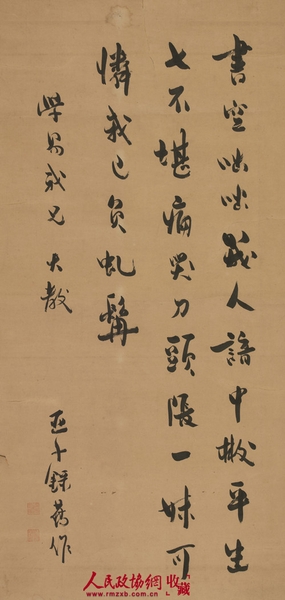 書空咄咄幾人諳中散平生
七不堪痛哭刀頭張一妹可
憐我已負虬髯
學易我兄大教
亞子錄舊作
人民政協網
www.rmzxb.com.cn
收藏